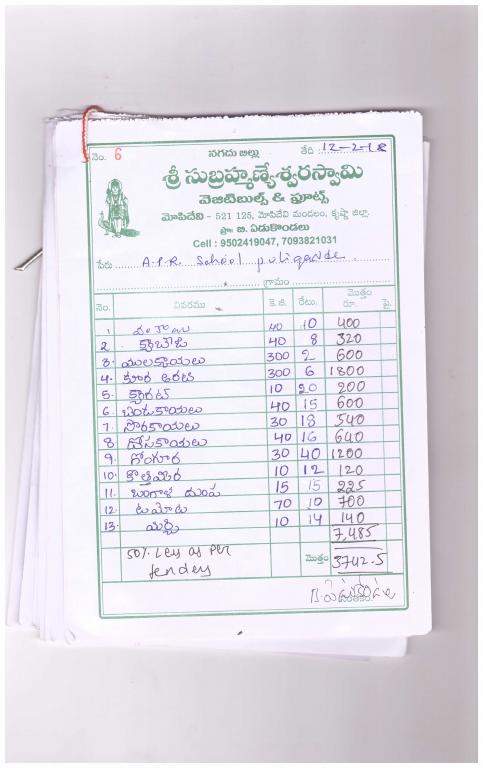 నెం. 6 నగదు బిల్లు తేది : 12-2-18
శ్రీ సుబ్రహ్మణ్యేశ్వరస్వామి
వెజిటిబుల్స్ & ఫ్రూట్స్
మోపిదేవి - 521 125, మోపిదేవి మండలం, కృష్ణా జిల్లా.
ప్రొ. బి. ఏడుకొండలు
Cell : 9502419047, 7093821031
పేరు A.P.R. School puligadde
గ్రామం
నెం. వివరము కె.జి. రేటు. మొత్తం రూ. పై
1 వంకాయ 40 10 400
2 క్యాబేజి 40 8 320
3. ములక్కాయలు 300 2 600
4. కూర అరటి 300 6 1800
5. క్యారట్ 10 20 200
6. బెండకాయలు 40 15 600
7. సొరకాయలు 30 18 540
8 దోసకాయలు 40 16 640
9. గోంగూర 30 40 1200
10. కొత్తిమీర 10 12 120
11. బంగాళ దుంప 15 15 225
12. టమోట 70 10 700
13. మిర్చి 10 14 140
7,485
50% Less as per
tender
మొత్తం 3742.5
సంతకం.